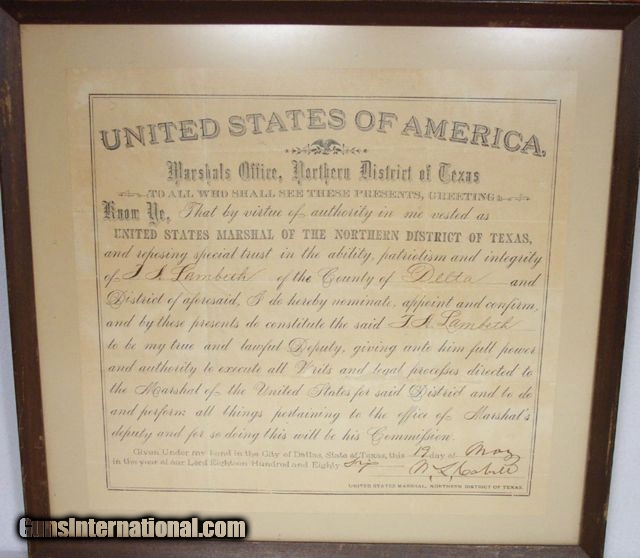 UNITED STATES OF AMERICA.
Marshals Office, Northern District of Texas
TO ALL WHO SHALL SEE THESE PRESENTS, GREETING
Know Ye, That by virtue of authority in me vested as
UNITED STATES MARSHAL OF THE NORTHERN DISTRICT OF TEXAS,
and reposing special trust in the ability, patriotism and integrity
of Lambeth of the County of Delta and
District of aforesaid, I do hereby nominate, appoint and confirm,
and by these presents do constitute the said Lambeth
to be my true and lawful Deputy, giving unto him full power
and authority to execute all Writs and legal processes directed to
the Marshal of the United States for said District and to do
and perform all things pertaining to the office of Marshal's
deputy and for so doing this will be his Commission.
Given Under my hand in the City of Dallas, State of Texas, this 19 day of May
in the year of our Lord Eighteen Hundred and Eighty six W. L. Cabell
UNITED STATES MARSHAL, NORTHERN DISTRICT OF TEXAS.
GunsInternational.com